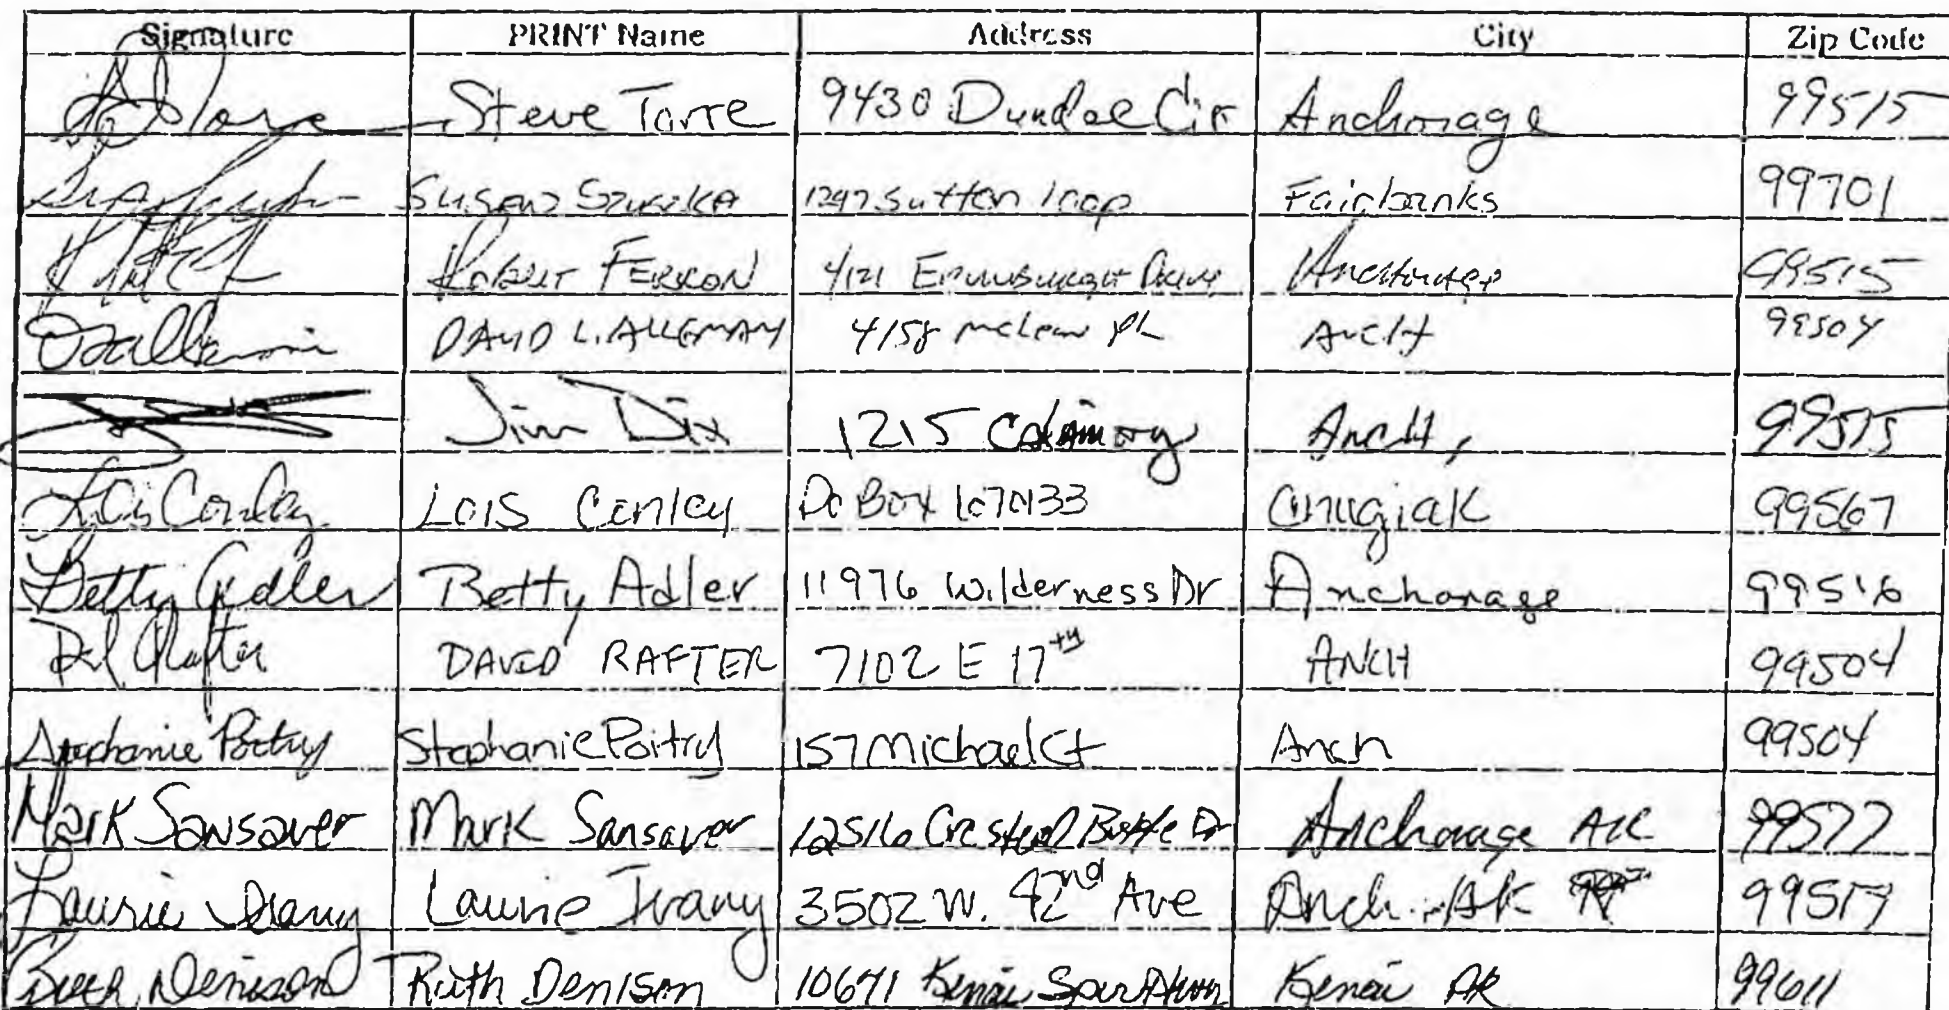 Signature PRINT Name Address City Zip Code
Steve Torre 9430 Dundee Cir Anchorage 99515
Susan 1297 Sutton loop Fairbanks 99701
Robert Ferron 4121 Anchorage 99515
DAVID L. ALLEMAN 4158 mclean PL Anch 99504
Jim Dix 1215 Anch, 99515
Lois Conley Lois Conley Po Box 670133 Chugiak 99567
Betty Adler Betty Adler 11976 Wilderness Dr Anchorage 99516
DAVID RAFTER 7102 E 17th ANCH 99504
Stephanie Poitry Stephanie Poitry 157 Michael Ct Anch 99504
Mark Sansaver Mark Sansaver 12516 Crested Butte Dr Anchorage AK 99577
Laurie Ivany Laurie Ivany 3502 W. 42nd Ave Anch. AK 99517
Ruth Denison Ruth Denison 10671 Kenai Spur Kenai AK 99611